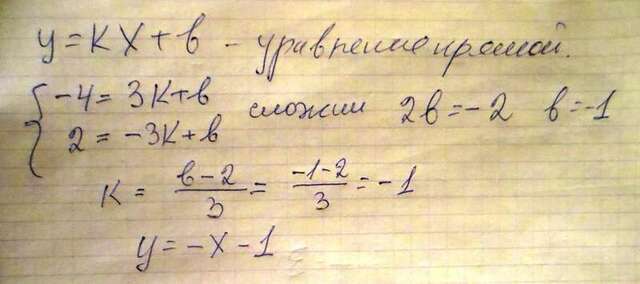 y = kx + b - уравнение прямой.
-4 = 3k+b
2 = -3k+b
сложим 2b = -2 b = -1
k = b-2/3 = -1-2/3 = -1
y = -x - 1